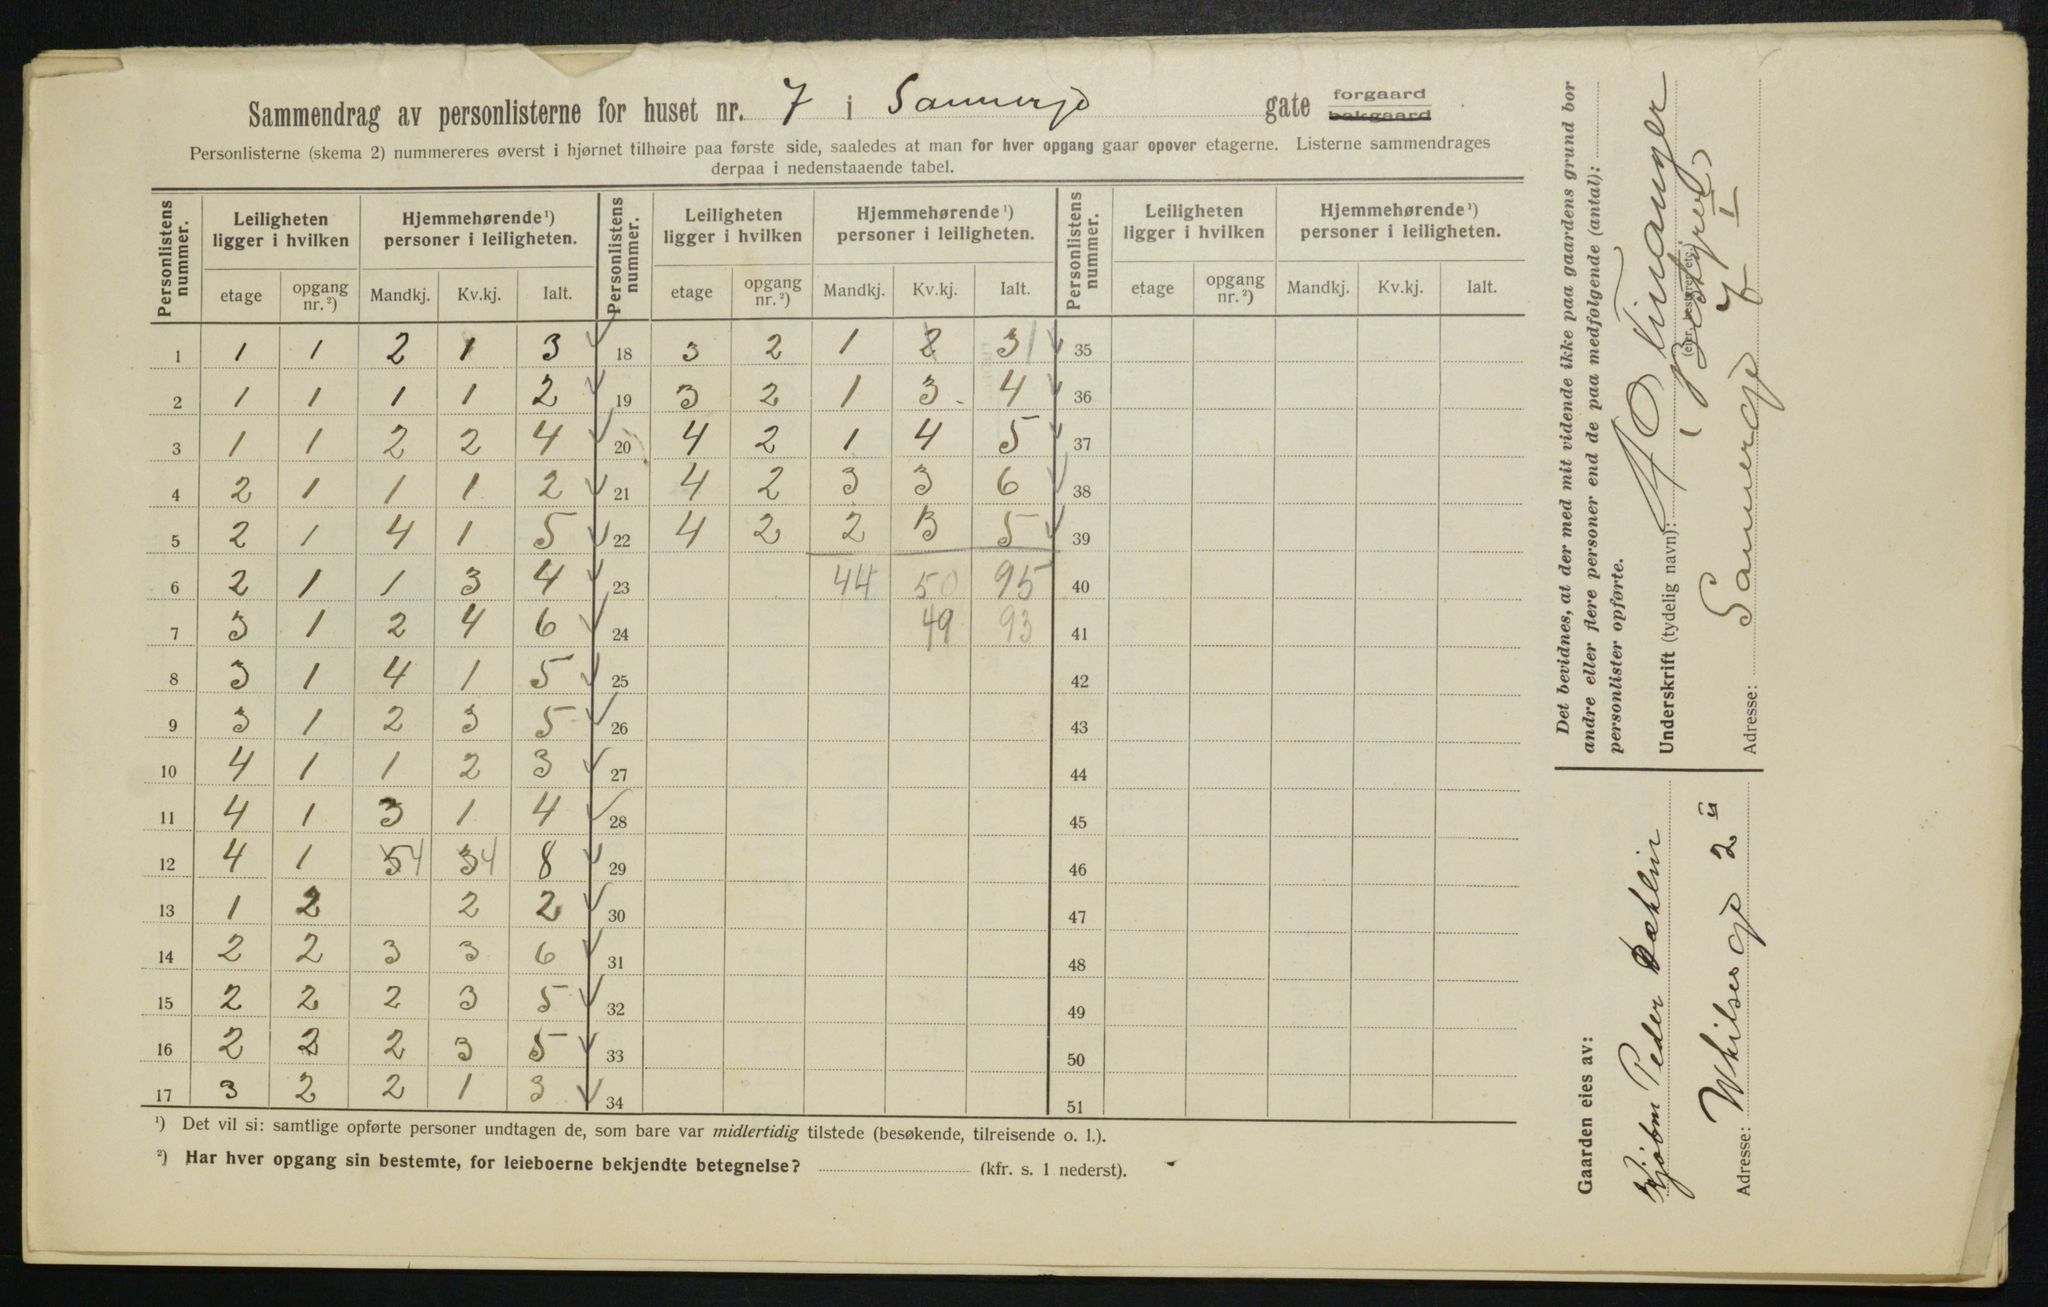 Sammendrag av personlisterne for huset nr. 7 i Sannergd gate forgaard
bakgaard
Personlisterne (skema 2) nummereres øverst i hjørnet tilhøire paa første side, saaledes at man for hver opgang gaar opover etagerne. Listerne sammendrages
derpaa i nedenstaaende tabel.
Personlistens nummer. Leiligheten ligger i hvilken Hjemmehørende ¹) personer i leiligheten. Personlistens nummer. Leiligheten ligger i hvilken Hjemmehørende ¹) personer i leiligheten. Personlistens nummer. Leiligheten ligger i hvilken Hjemmehørende ¹) personer i leiligheten.
etage opgang nr. ²) Mandkj. Kv.kj. Ialt. etage opgang nr. ²) Mandkj. Kv.kj. Ialt. etage opgang nr. ²) Mandkj. Kv.kj. Ialt.
1 1 1 2 1 3 ✓ 18 3 2 1 2 3 ✓ 35
2 1 1 1 1 2 ✓ 19 3 2 1 3 4 ✓ 36
3 1 1 2 2 4 ✓ 20 4 2 1 4 5 ✓ 37
4 2 1 1 1 2 ✓ 21 4 2 3 3 6 ✓ 38
5 2 1 4 1 5 ✓ 22 4 2 2 3 5 ✓ 39
6 2 1 1 3 4 ✓ 23 44 50 95 40
7 3 1 2 4 6 ✓ 24 49 93 41
8 3 1 4 1 5 ✓ 25 42
9 3 1 2 3 5 ✓ 26 43
10 4 1 1 2 3 ✓ 27 44
11 4 1 3 1 4 ✓ 28 45
12 4 1 54 34 8 ✓ 29 46
13 1 2 2 2 ✓ 30 47
14 2 2 3 3 6 ✓ 31 48
15 2 2 2 3 5 ✓ 32 49
16 2 2 2 3 5 ✓ 33 50
17 3 2 2 1 3 ✓ 34 51
¹) Det vil si: samtlige opførte personer undtagen de, som bare var midlertidig tilstede (besøkende, tilreisende o. l.).
²) Har hver opgang sin bestemte, for leieboerne bekjendte betegnelse? (kfr. s. 1 nederst).
Det bevidnes, at der med mit vidende ikke paa gaardens grund bor
andre eller flere personer end de paa medfølgende (antal):
personlister opførte.
Underskrift (tydelig navn):
(eier, bestyrer etc.)
(Bestyrer)
Adresse: Sannergd 7 I
Gaarden eies av:
Peder
Adresse: 2